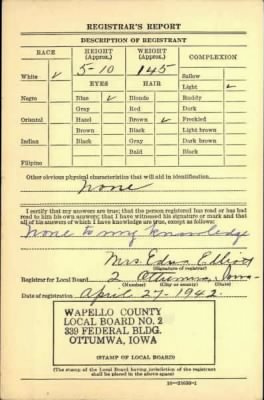 REGISTRAR'S REPORT
DESCRIPTION OF REGISTRANT
RACE HEIGHT (Approx.) WEIGHT (Approx.) COMPLEXION
White ✓ 5-10 145 Sallow
EYES HAIR Light ✓
Negro Blue ✓ Blonde Ruddy
Gray Red Dark
Oriental Hazel Brown ✓ Freckled
Brown Black Light brown
Indian Black Gray Dark brown
Bald Black
Filipino
Other obvious physical characteristics that will aid in identification
None
I certify that my answers are true; that the person registered has read or has had
read to him his own answers; that I have witnessed his signature or mark and that
all of his answers of which I have knowledge are true, except as follows:
None to my knowledge
Mrs. Edna Elliott
(Signature of registrar)
Registrar for Local Board 2 Ottumwa Iowa
(Number) (City or county) (State)
Date of registration April 27-1942
WAPELLO COUNTY
LOCAL BOARD NO. 2
339 FEDERAL BLDG.
OTTUMWA, IOWA
(STAMP OF LOCAL BOARD)
(The stamp of the Local Board having jurisdiction of the registrant
shall be placed in the above space)